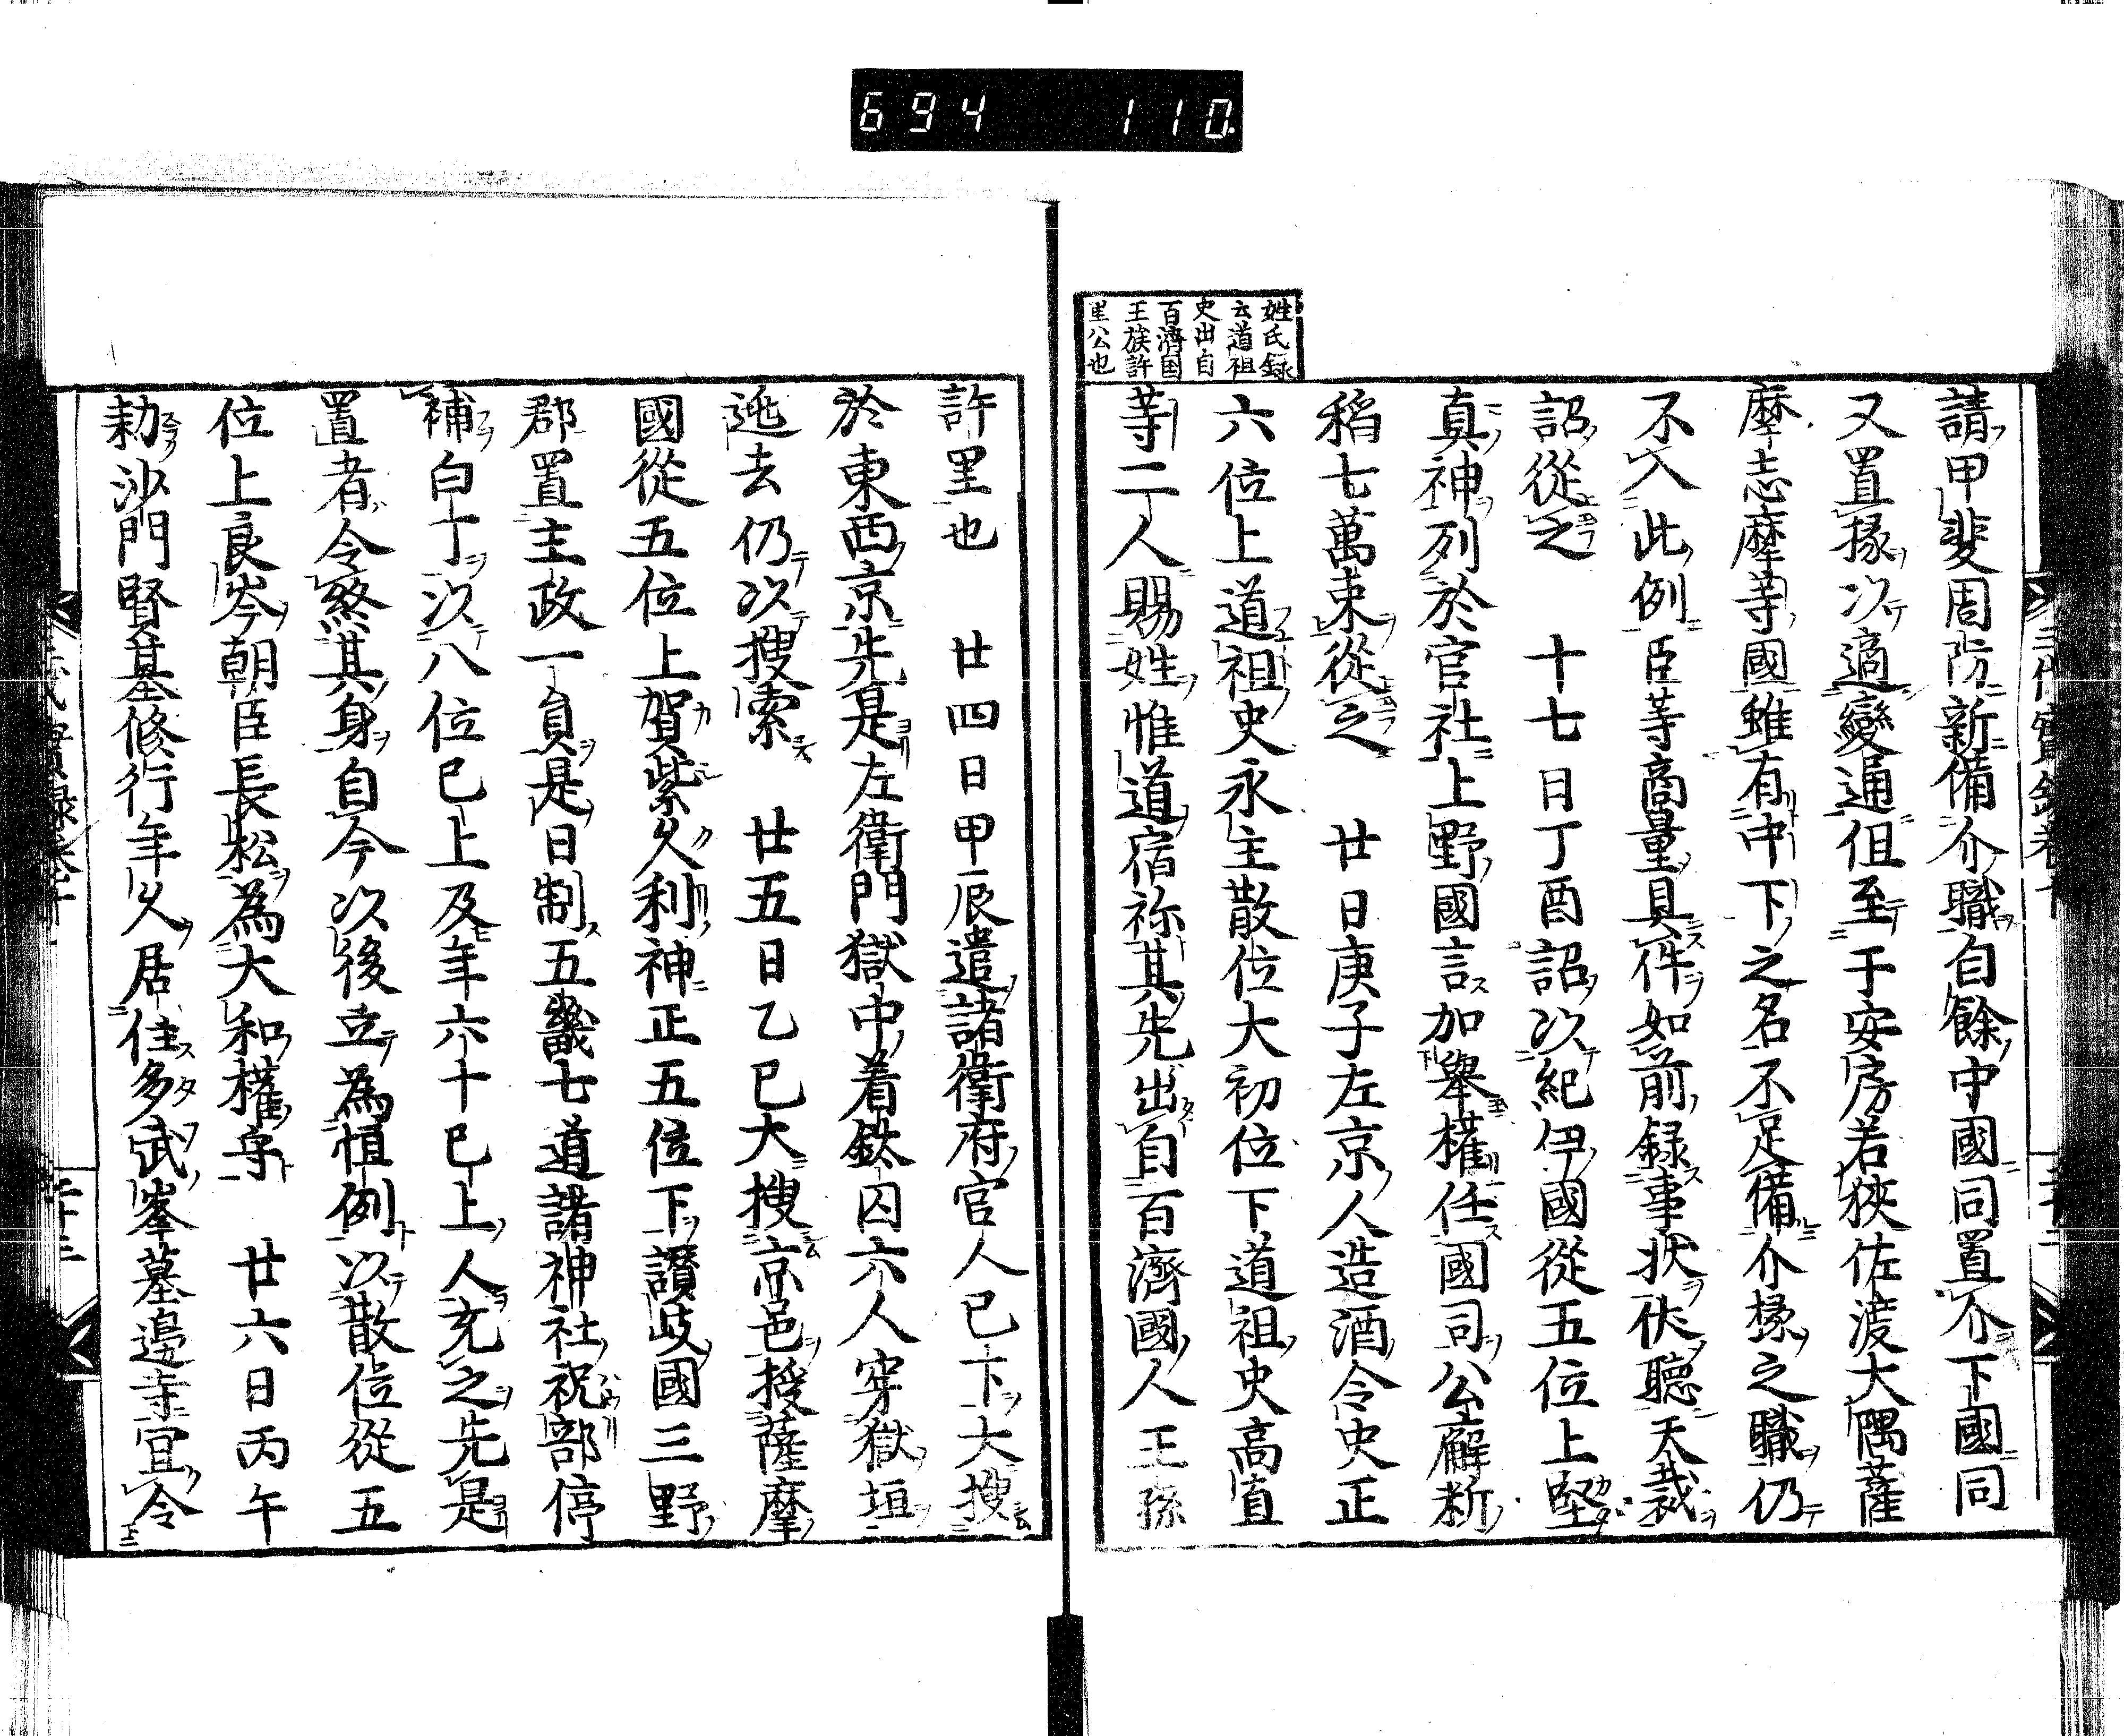 694 110
姓氏録
云道祖
史出自
百濟国
王族許
里公也
請甲斐周防新備介職自餘中國同置介下國同
又置掾以適變通但至于安房若狹佐渡大隅薩
摩志摩等國雖有中下之名不足備介掾之職仍
不入此例臣等商量具件如前録事狀伏聽天裁
詔從之　十七日丁酉詔以紀伊國從五位上堅
真神列於官社上野國言加舉權任國司公廨断
稻七萬束從之　廿日庚子左京人造酒令史正
六位上道祖史永主散位大初位下道祖史高直
等二人賜姓惟道宿祢其先出自百濟國人王孫
許里也　廿四日甲辰遣諸衛府官人已下大搜
於東西京先是左衛門獄中着鈦囚六人穿獄垣
逃去仍以搜索　廿五日乙巳大搜京邑授薩摩
國從五位上賀紫久利神正五位下讃岐國三野
郡置主政一員是日制五畿七道諸神社祝部停
補白丁以八位已上及年六十已上人充之先是
置者令終其身自今以後立為恒例以散位從五
位上良岑朝臣長松為大和權守　廿六日丙午
勅沙門賢基修行年久居住多武峯墓邊寺宜令